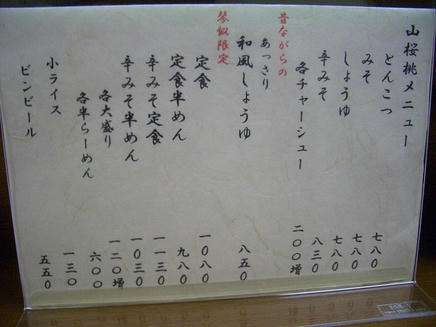 山桜桃メニュー
とんこつ 七八〇
みそ 七八〇
しょうゆ 七八〇
辛みそ 八三〇
各チャーシュー 二〇〇増
昔ながらの
あっさり
和風しょうゆ 八五〇
琴似限定
定食 一〇八〇
定食半めん 九八〇
辛みそ定食 一一三〇
辛みそ半めん 一〇三〇
各大盛り 一二〇増
各半らーめん 六〇〇
小ライス 一三〇
ビンビール 五五〇